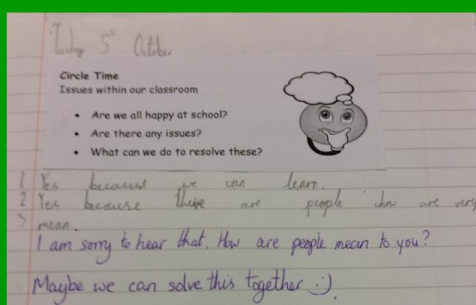 Tuesday 5th October
Circle Time
Issues within our classroom
• Are we all happy at school?
• Are there any issues?
• What can we do to resolve these?
1 Yes because we can learn.
2 Yes because there are people who are very
3 mean.
I am sorry to hear that. How are people mean to you?
Maybe we can solve this together :).